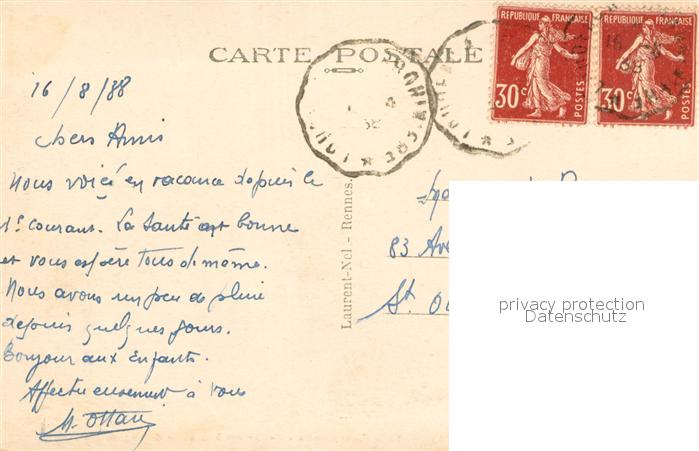 CARTE POSTALE
REPUBLIQUE FRANÇAISE
30c
POSTES
REPUBLIQUE FRANÇAISE
30c
POSTES
16/8/88
chers Amis
Nous voici en vacance depuis le
1er courant. La Santé est bonne
et vous espère tous de même.
Nous avons un peu de pluie
depuis quelques jours.
Bonjour aux Enfants.
Affectueusement à vous
Laurent-Nel - Rennes
83 Ave
St. Ou
privacy protection
Datenschutz